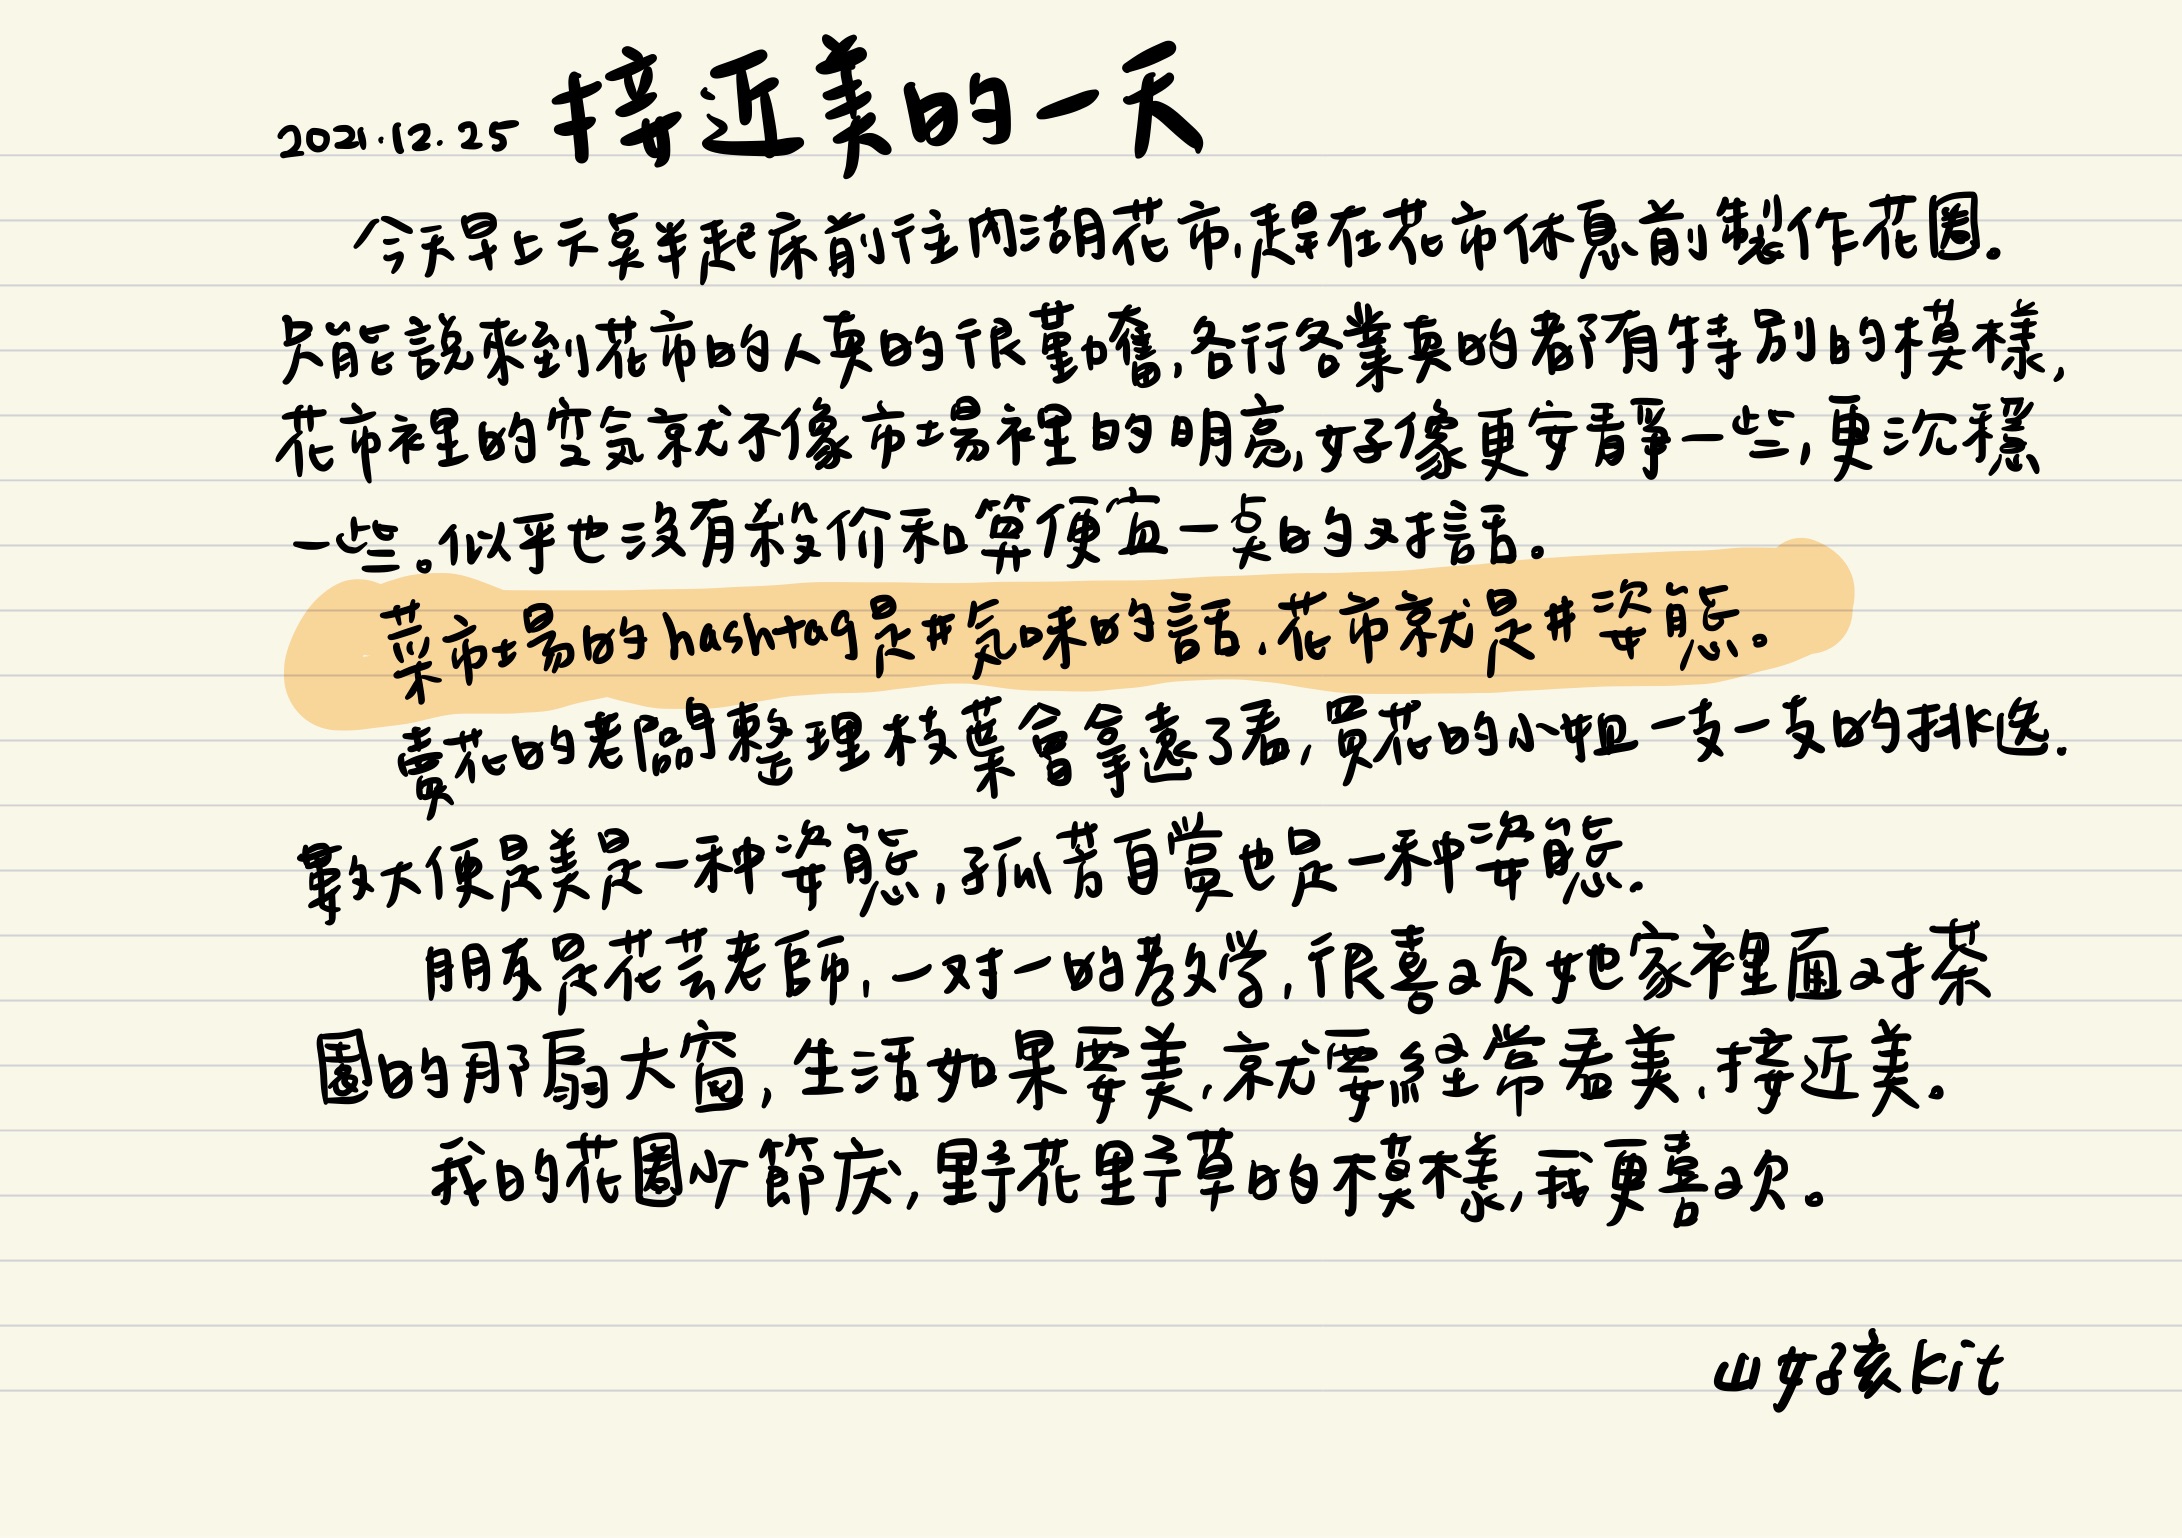 2021.12.25 接近美的一天
今天早上六點半起床前往內湖花市,趕在花市休息前製作花圈.
只能說來到花市的人真的很勤奮,各行各業真的都有特別的模樣,
花市裡的空気就不像市場裡的明亮,好像更安靜一些,更沉穩
一些。似乎也沒有殺价和算便宜一点的对話。
菜市場的hashtag是#気味的話,花市就是#姿態。
賣花的老闆整理枝葉會拿遠了看,買花的小姐一支一支的挑选.
數大便是美是一种姿態,孤芳自賞也是一种姿態.
朋友是花芸老師,一对一的教学,很喜欢她家裡面对茶
園的那扇大窗,生活如果要美,就要経常看美,接近美。
我的花圈少了節庆,野花野草的模樣,我更喜欢。
山女孩kit